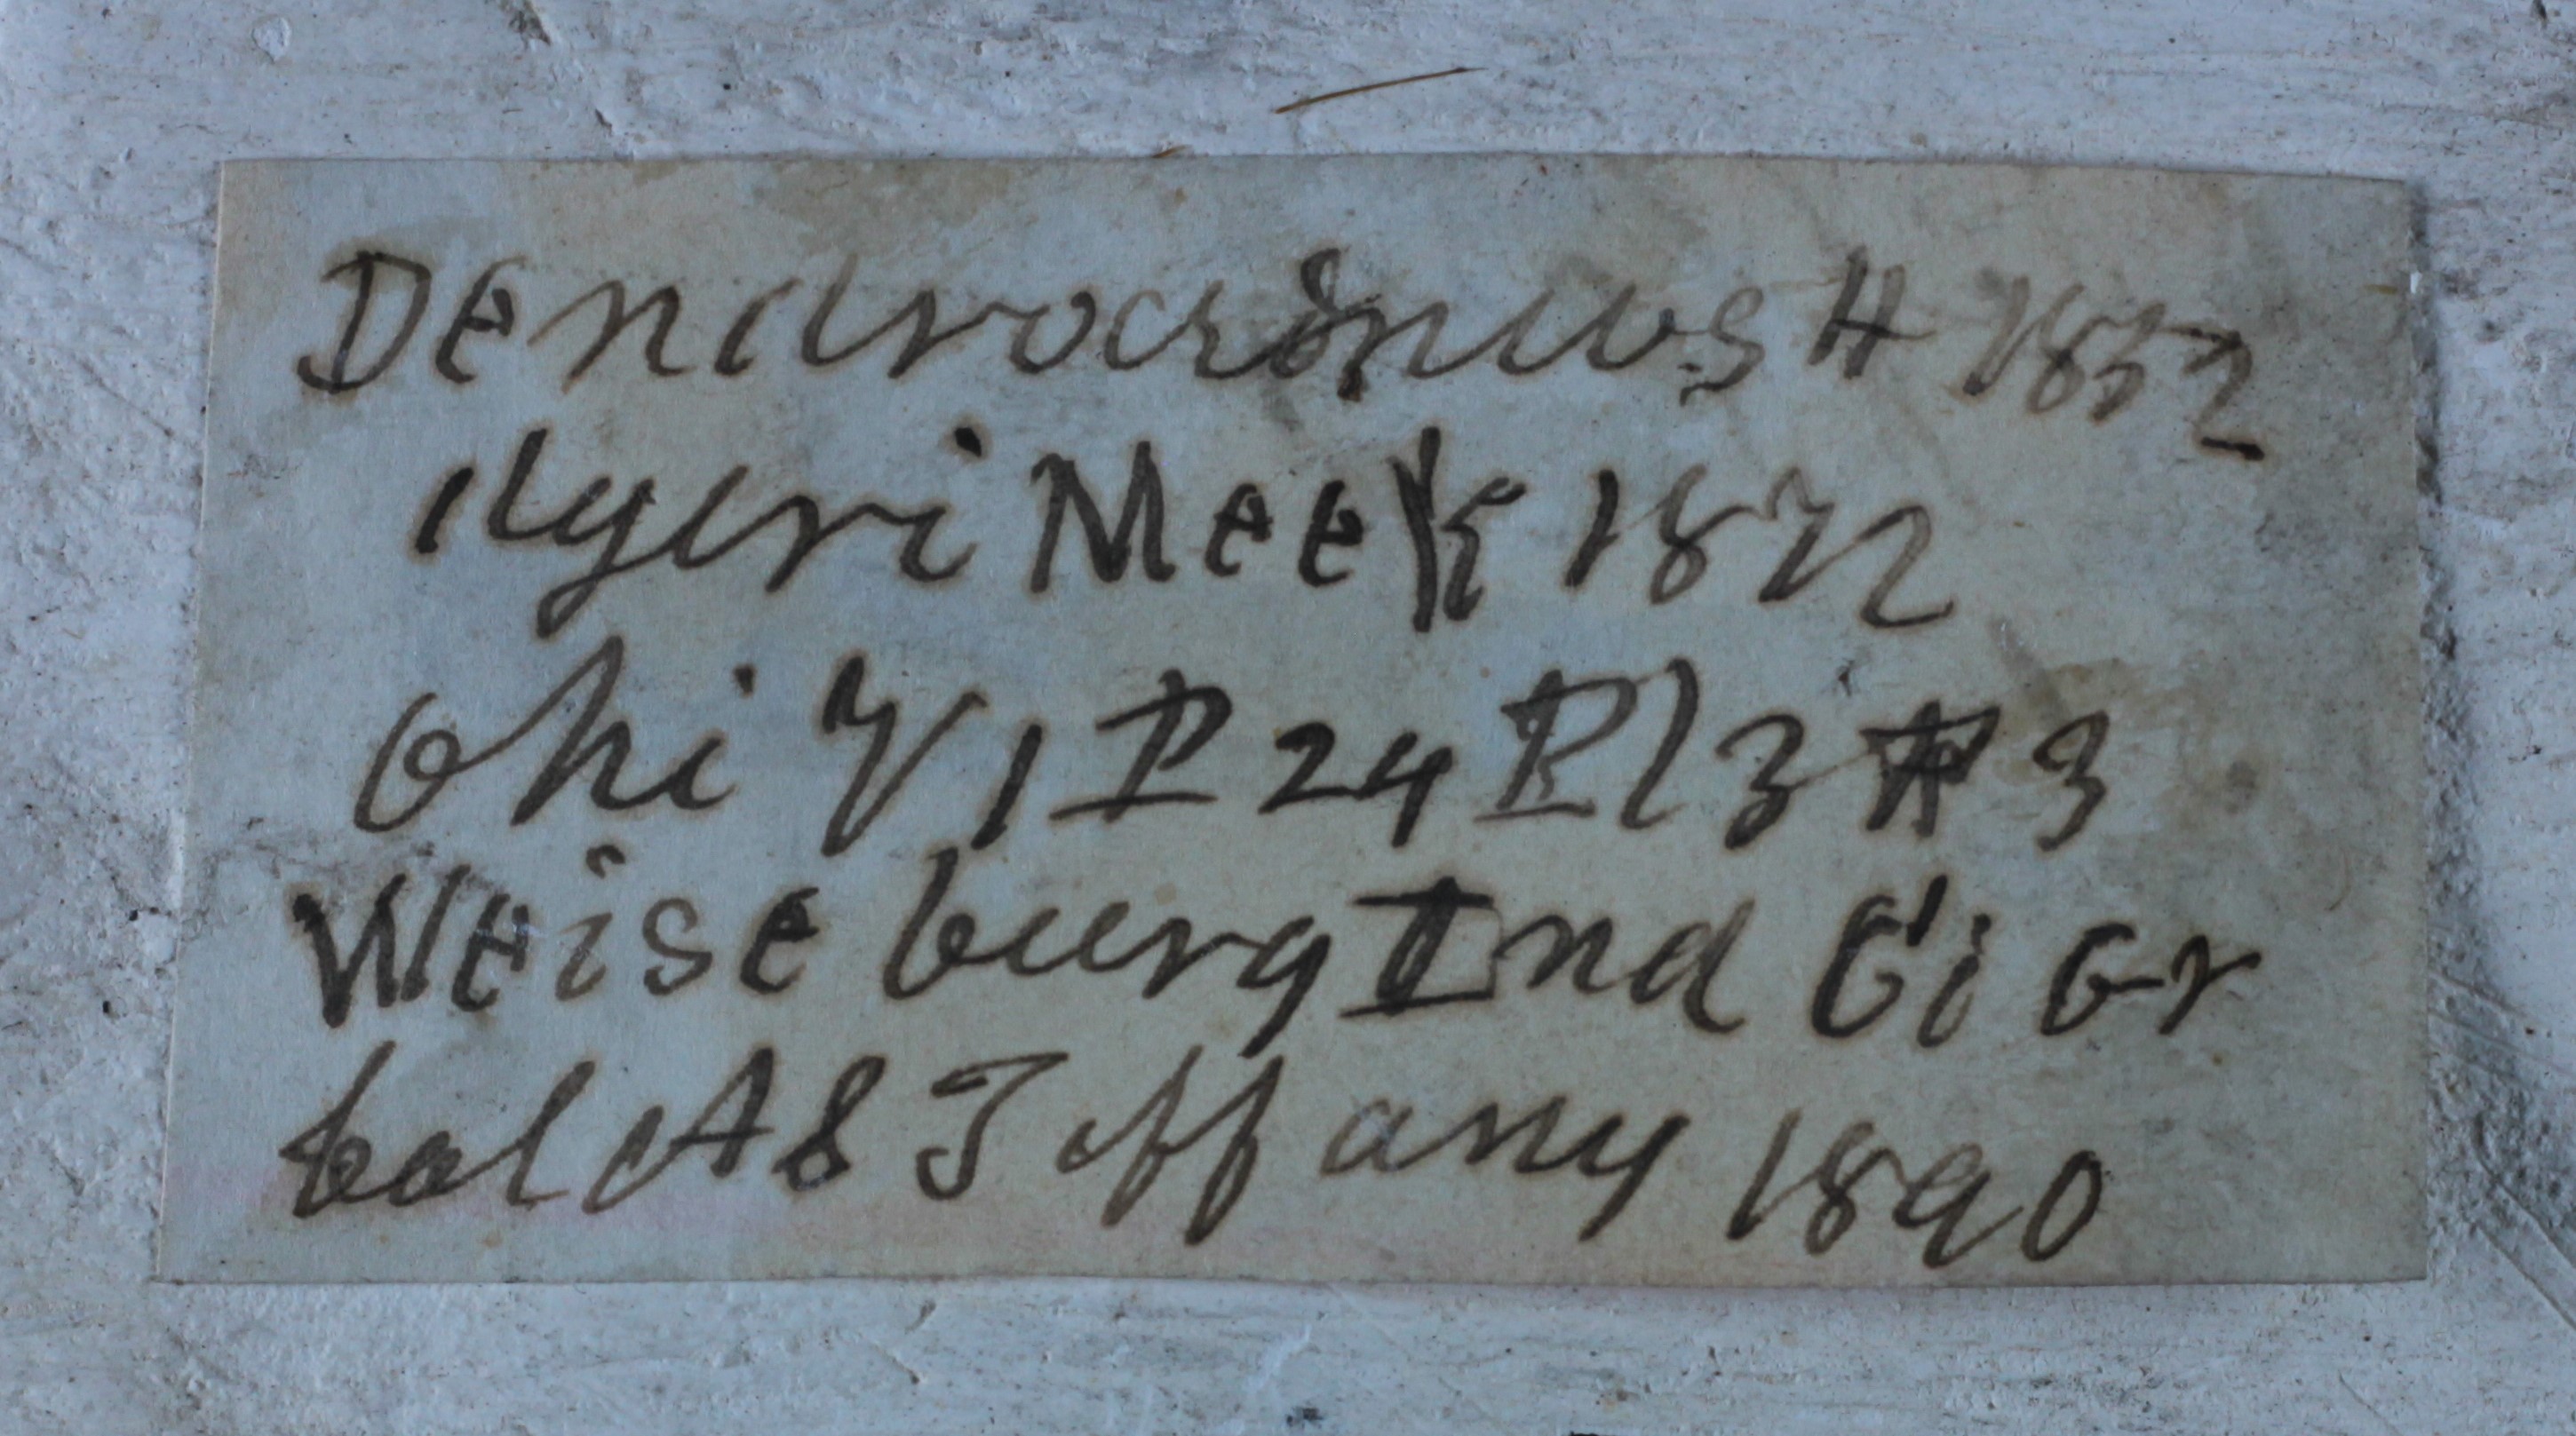 Dendrocrinus H 1852
dyeri Meek 1872
Ohi V 1 P 24 Pl 3 F 3
Weiseburg Ind Ci Gr
Col A S Tiffany 1890